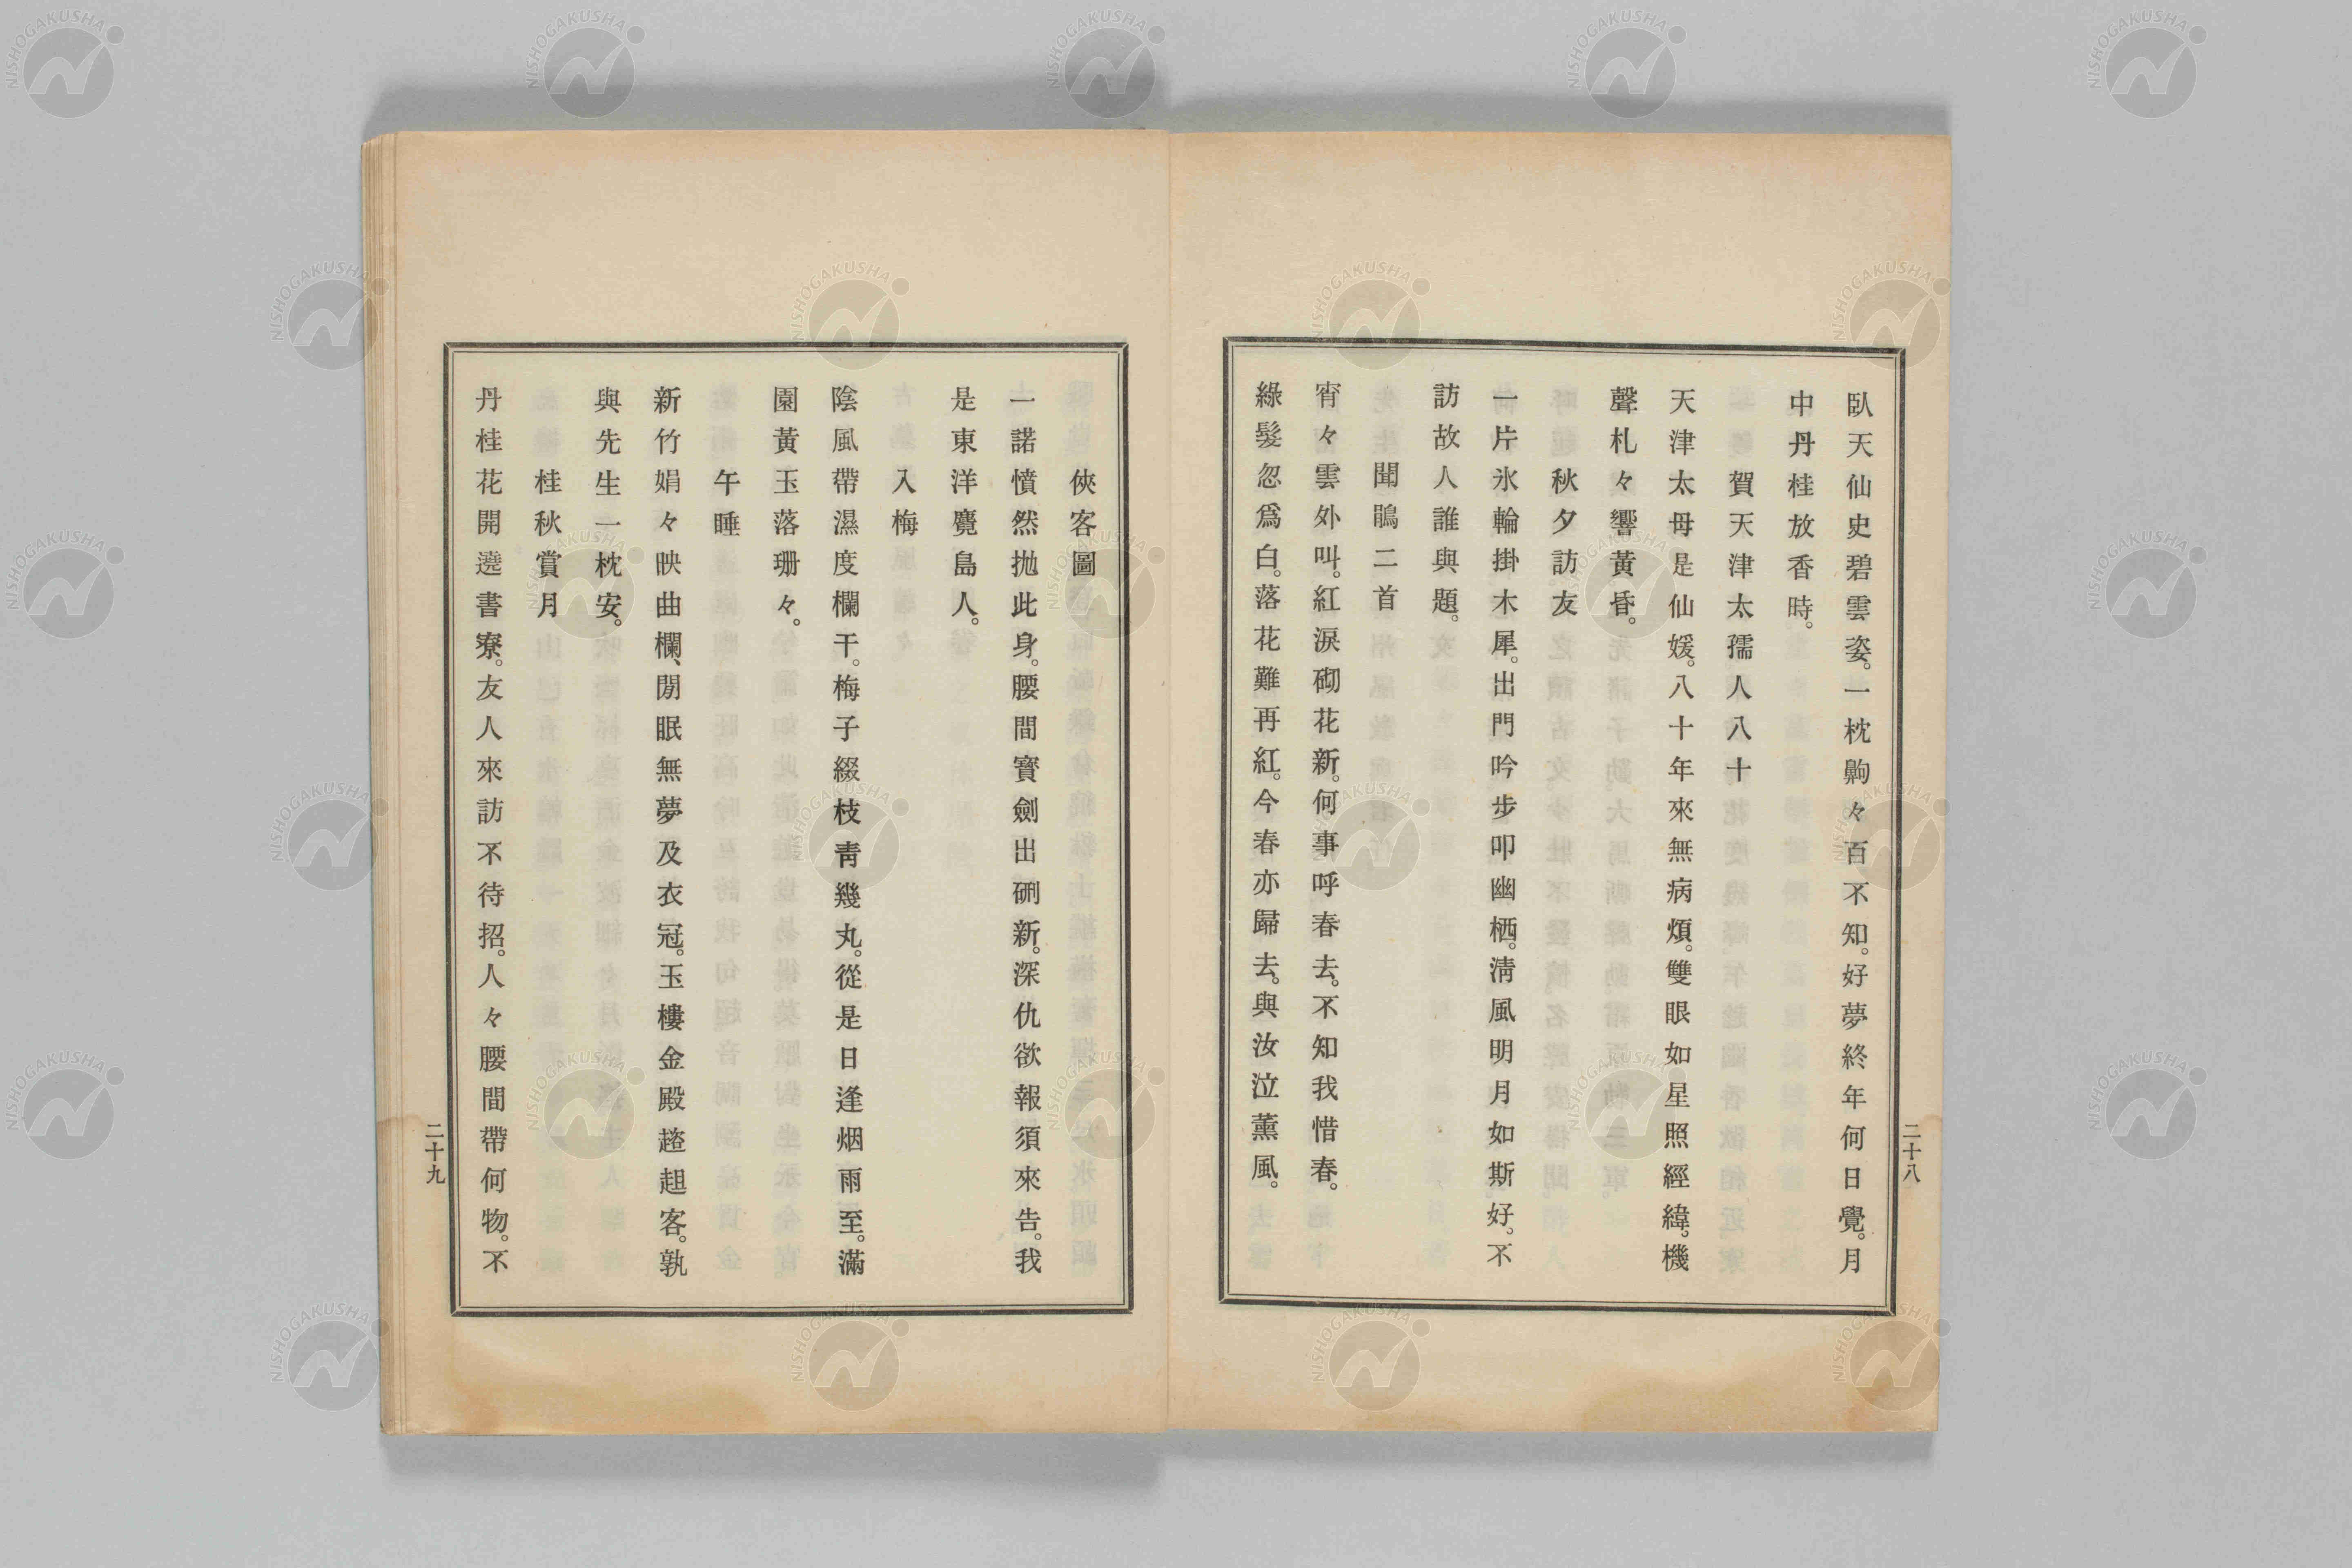 臥天仙史碧雲姿。一枕齁々百不知。好夢終年何日覺。月
中丹桂放香時。
賀天津太孺人八十
天津太母是仙媛。八十年來無病煩。雙眼如星照經緯。機
聲札々響黃昏。
秋夕訪友
一片氷輪掛木犀。出門吟步叩幽栖。淸風明月如斯好。不
訪故人誰與題。
聞鵑二首
宵々雲外叫。紅淚砌花新。何事呼春去。不知我惜春。
綠髮忽爲白。落花難再紅。今春亦歸去。與汝泣薰風。
二十八
俠客圖
一諾憤然抛此身。腰間寶劍出硎新。深仇欲報須來告。我
是東洋麑島人。
入梅
陰風帶濕度欄干。梅子綴枝靑幾丸。從是日逢烟雨至。滿
園黃玉落珊々。
午睡
新竹娟々映曲欄、閒眠無夢及衣冠。玉樓金殿趑趄客。孰
與先生一枕安。
桂秋賞月
丹桂花開遶書寮。友人來訪不待招。人々腰間帶何物。不
二十九
NISHOGAKUSHA